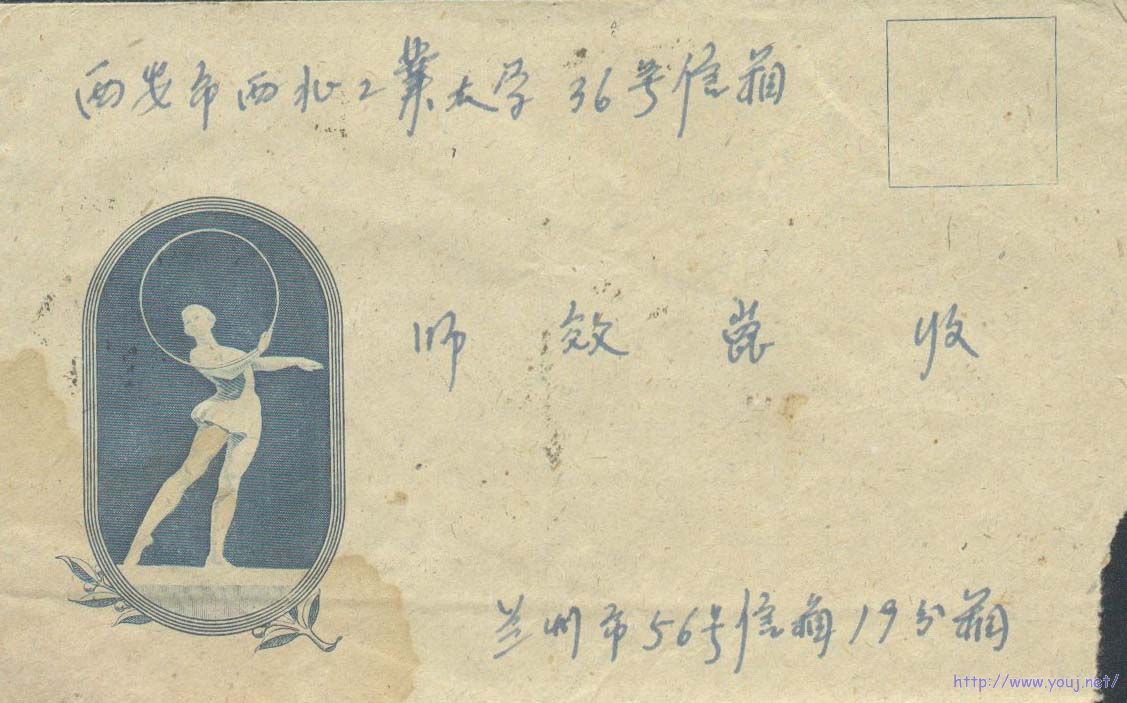 西安市西北工業大学 36号信箱
师效 收
兰州市56号信箱19分箱
http://www.youj.net/